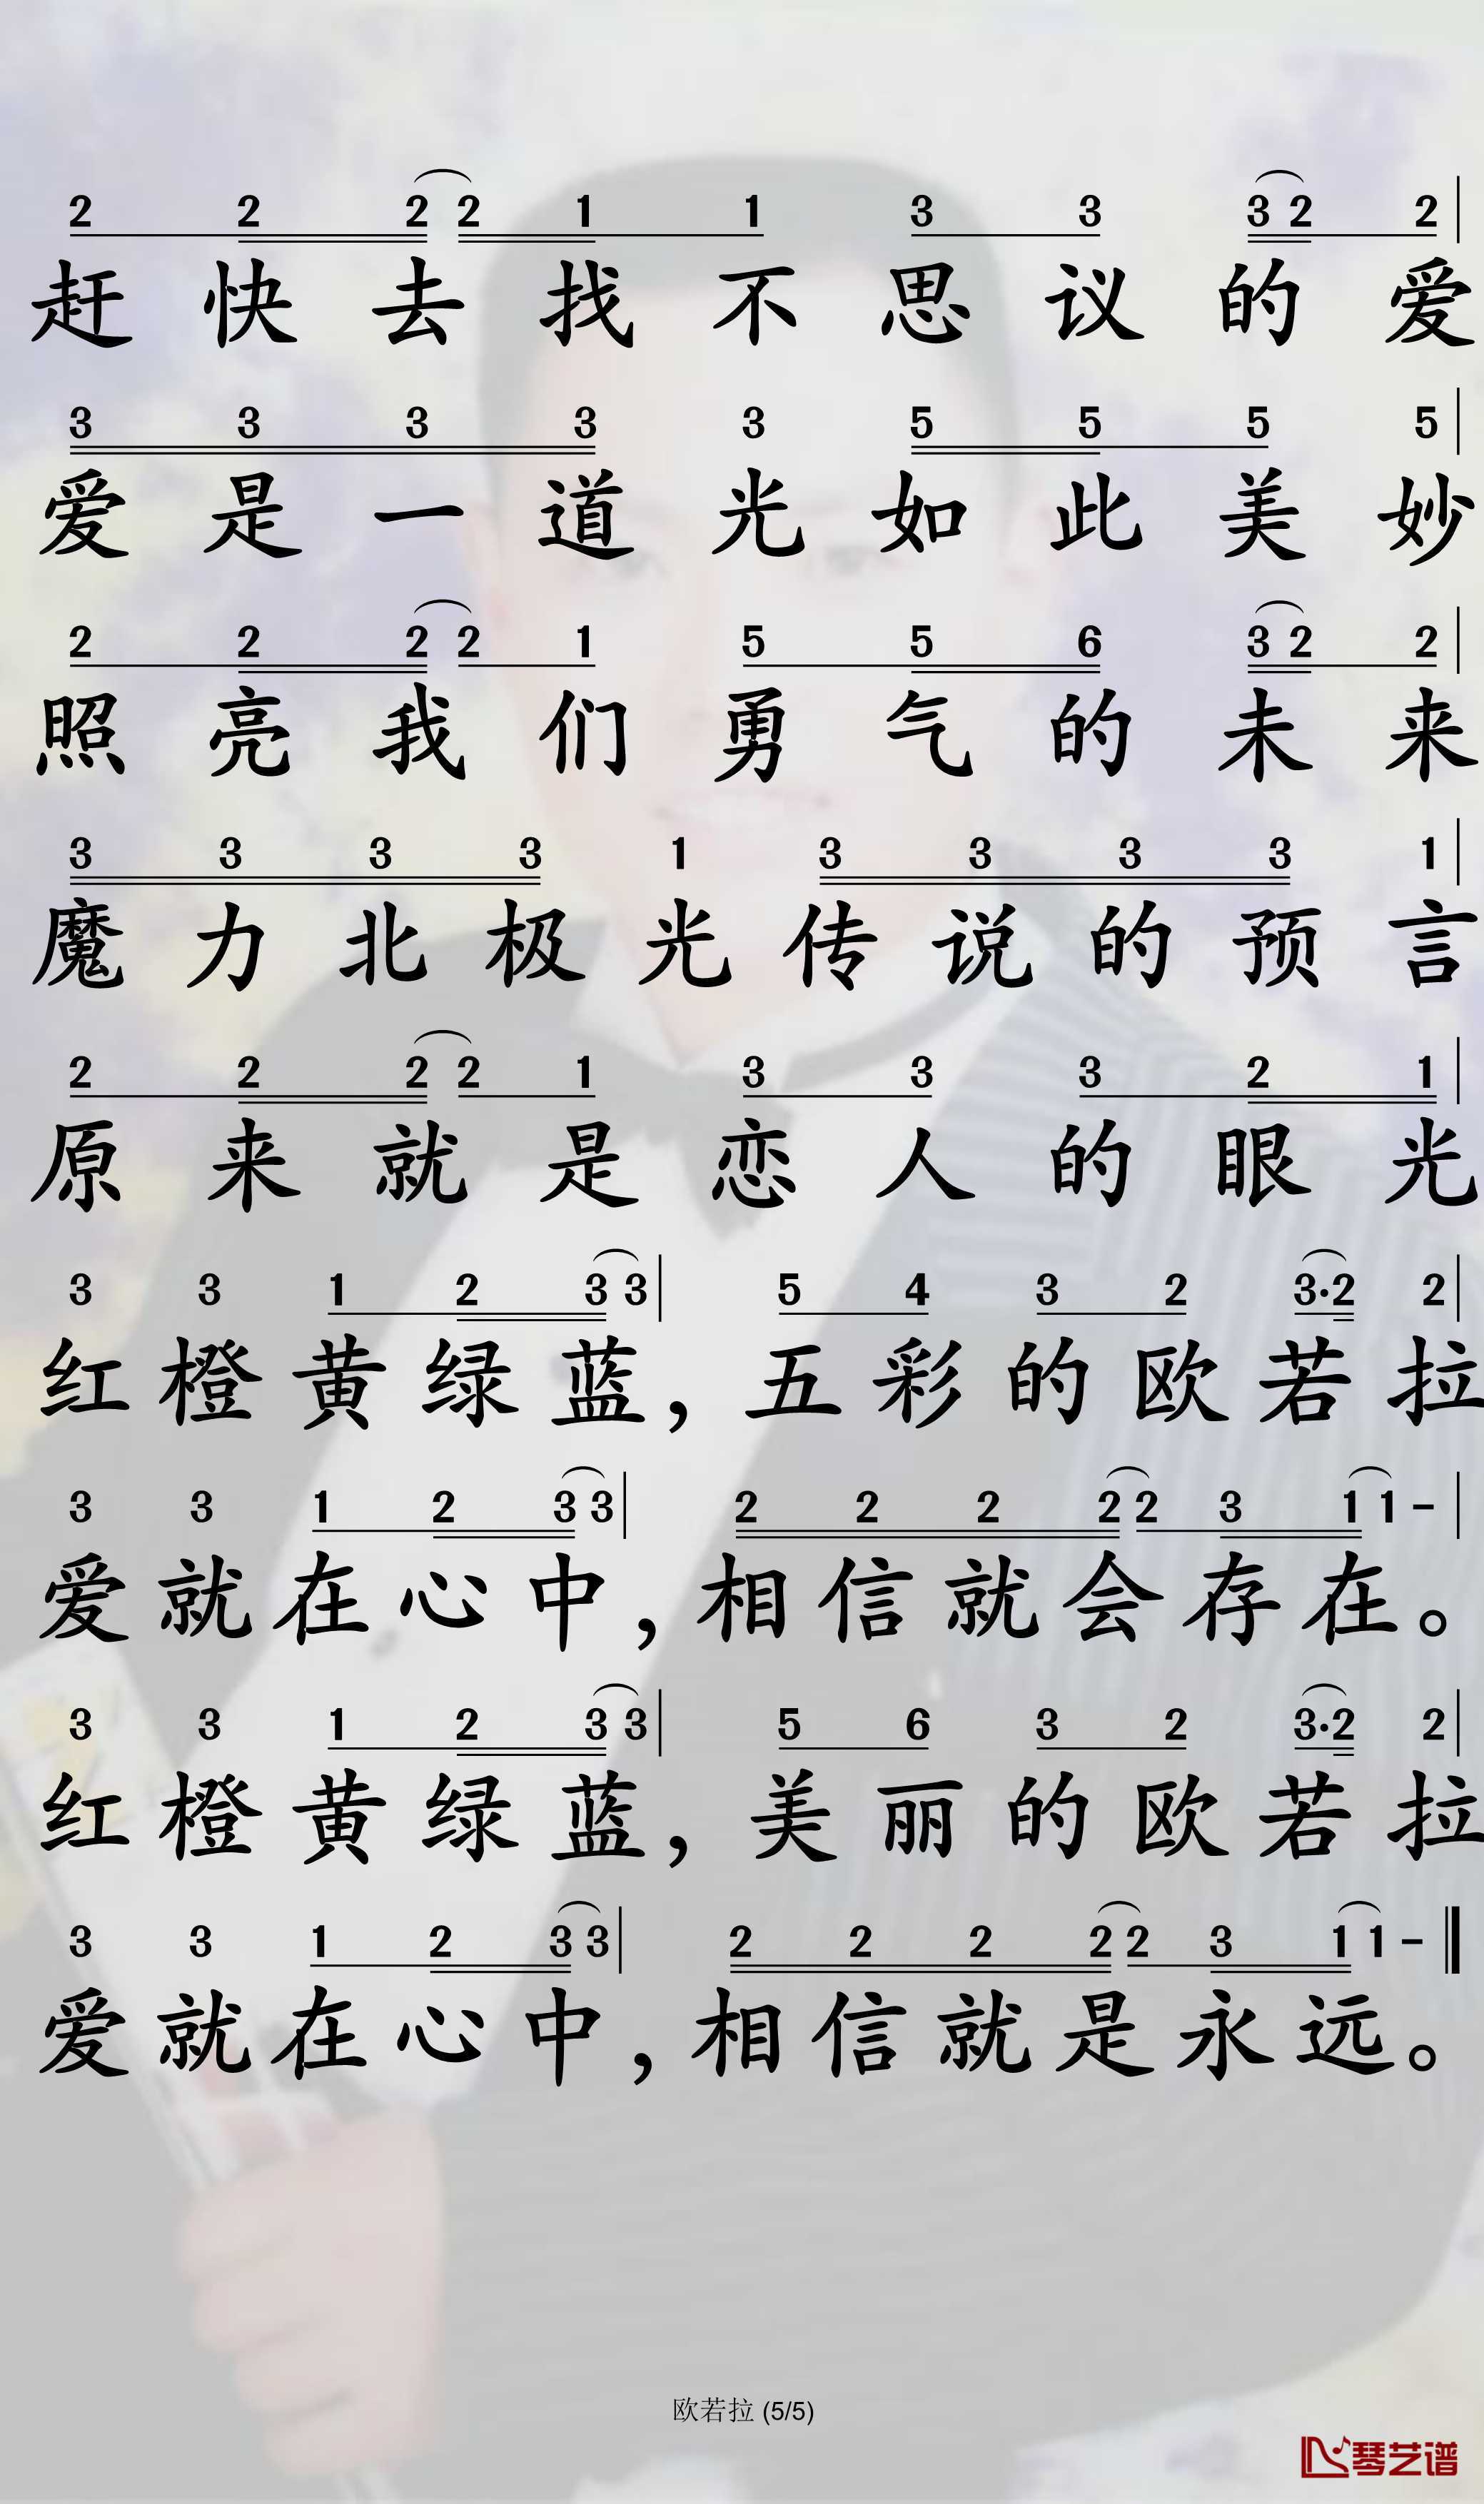 2 2 2 2 1 1 3 3 3 2 2
赶快去找不思议的爱
3 3 3 3 3 5 5 5 5
爱是一道光如此美妙
2 2 2 2 1 5 5 6 3 2 2
照亮我们勇气的未来
3 3 3 3 1 3 3 3 3 1
魔力北极光传说的预言
2 2 2 2 1 3 3 3 2 1
原来就是恋人的眼光
3 3 1 2 3 3 5 4 3 2 3·2 2
红橙黄绿蓝，五彩的欧若拉
3 3 1 2 3 3 2 2 2 2 2 3 1 1 -
爱就在心中，相信就会存在。
3 3 1 2 3 3 5 6 3 2 3·2 2
红橙黄绿蓝，美丽的欧若拉
3 3 1 2 3 3 2 2 2 2 2 3 1 1 -
爱就在心中，相信就是永远。
欧若拉 (5/5)
琴艺谱